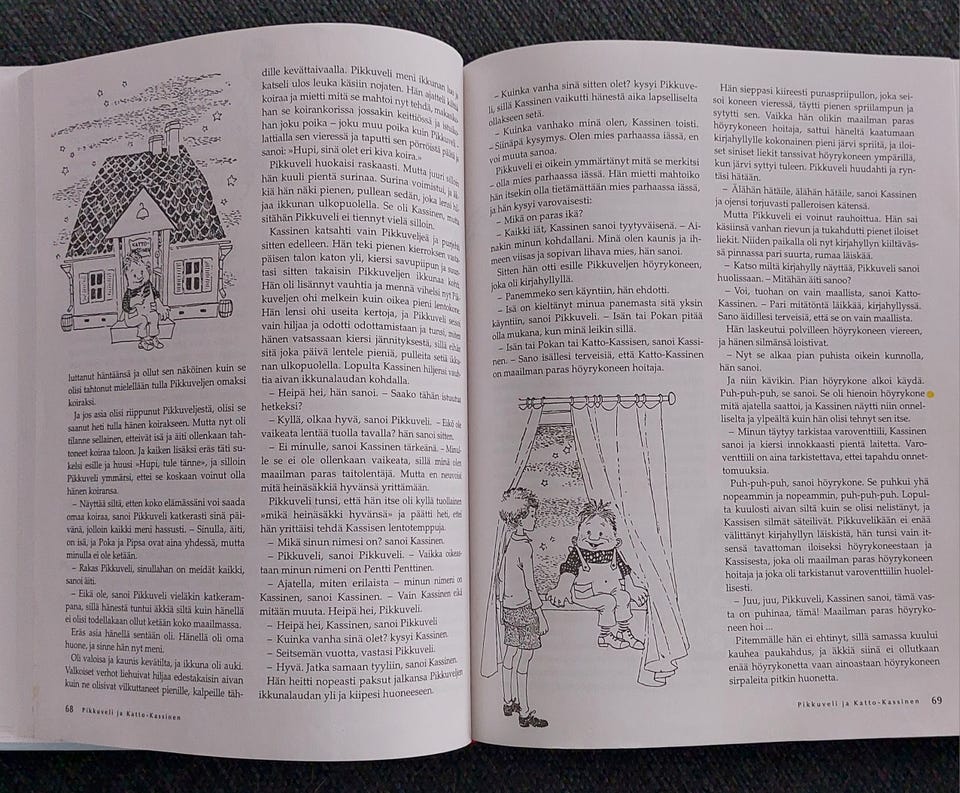 KATTO-
luttanut häntäänsä ja ollut sen näköinen kuin se
olisi tahtonut mielellään tulla Pikkuveljen omaksi
koiraksi.
Ja jos asia olisi riippunut Pikkuveljestä, olisi se
saanut heti tulla hänen koirakseen. Mutta nyt oli
tilanne sellainen, etteivät isä ja äiti ollenkaan tah-
toneet koiraa taloon. Ja kaiken lisäksi eräs täti su-
kelsi esille ja huusi »Hupi, tule tänne», ja silloin
Pikkuveli ymmärsi, ettei se koskaan voinut olla
hänen koiransa.
– Näyttää siltä, etten koko elämässäni voi saada
omaa koiraa, sanoi Pikkuveli katkerasti sinä päi-
vänä, jolloin kaikki meni hassusti. – Sinulla, äiti,
on isä, ja Poka ja Pipsa ovat aina yhdessä, mutta
minulla ei ole ketään.
– Rakas Pikkuveli, sinullahan on meidät kaikki,
sanoi äiti.
– Eikä ole, sanoi Pikkuveli vieläkin katkeram-
pana, sillä hänestä tuntui äkkiä siltä kuin hänellä
ei olisi todellakaan ollut ketään koko maailmassa.
Eräs asia hänellä sentään oli. Hänellä oli oma
huone, ja sinne hän nyt meni.
Oli valoisa ja kaunis kevätilta, ja ikkuna oli auki.
Valkoiset verhot liehuivat hiljaa edestakaisin aivan
kuin ne olisivat vilkuttaneet pienille, kalpeille täh-
68 Pikkuveli ja Katto-Kassinen
dille kevättaivaalla. Pikkuveli meni ikkunan luo ja
katseli ulos leuka käsiin nojaten. Hän ajatteli
koiraa ja mietti mitä se mahtoi nyt tehdä, makasiko
han se koirankorissa jossakin keittiössä ja istuiko
han joku poika – joku muu poika kuin Pikkuveli –
lattialla sen vieressä ja taputti sen pörröistä päätä ja
sanoi: »Hupi, sinä olet eri kiva koira.»
Pikkuveli huokaisi raskaasti. Mutta juuri silloin
hän kuuli pientä surinaa. Surina voimistui, ja äk-
kiä hän näki pienen, pullean sedän, joka lensi hil-
jaa ikkunan ulkopuolella. Se oli Kassinen, mutta
sitähän Pikkuveli ei tiennyt vielä silloin.
Kassinen katsahti vain Pikkuveljeen ja purjehti
sitten edelleen. Hän teki pienen kierroksen vasta-
päisen talon katon yli, kiersi savupiipun ja suun-
tasi sitten takaisin Pikkuveljen ikkunaa kohti.
Hän oli lisännyt vauhtia ja mennä vihelsi nyt Pik-
kuveljen ohi melkein kuin oikea pieni lentokone.
Hän lensi ohi useita kertoja, ja Pikkuveli seisoi
vain hiljaa ja odotti odottamistaan ja tunsi, miten
hänen vatsassaan kiersi jännityksestä, sillä eihän
sitä joka päivä lentele pieniä, pulleita setiä ikku-
nan ulkopuolella. Lopulta Kassinen hiljensi vauh-
tia aivan ikkunalaudan kohdalla.
– Heipä hei, hän sanoi. – Saako tähän istuutua
hetkeksi?
– Kyllä, olkaa hyvä, sanoi Pikkuveli. – Eikö ole
vaikeata lentää tuolla tavalla? hän sanoi sitten.
– Ei minulle, sanoi Kassinen tärkeänä. – Minul-
le se ei ole ollenkaan vaikeata, sillä minä olen
maailman paras taitolentäjä. Mutta en neuvoisi
mitä heinäsäkkiä hyvänsä yrittämään.
Pikkuveli tunsi, että hän itse oli kyllä tuollainen
»mikä heinäsäkki hyvänsä» ja päätti heti, ettei
hän yrittäisi tehdä Kassisen lentotemppuja.
– Mikä sinun nimesi on? sanoi Kassinen.
– Pikkuveli, sanoi Pikkuveli. – Vaikka oikeas-
taan minun nimeni on Pentti Penttinen.
– Ajatella, miten erilaista – minun nimeni on
Kassinen, sanoi Kassinen. – Vain Kassinen eikä
mitään muuta. Heipä hei, Pikkuveli.
– Heipä hei, Kassinen, sanoi Pikkuveli
– Kuinka vanha sinä olet? kysyi Kassinen.
– Seitsemän vuotta, vastasi Pikkuveli.
– Hyvä. Jatka samaan tyyliin, sanoi Kassinen.
Hän heitti nopeasti paksut jalkansa Pikkuveljen
ikkunalaudan yli ja kiipesi huoneeseen.
– Kuinka vanha sinä sitten olet? kysyi Pikkuve-
li, sillä Kassinen vaikutti hänestä aika lapselliselta
ollakseen setä.
– Kuinka vanhako minä olen, Kassinen toisti.
– Siinäpä kysymys. Olen mies parhaassa iässä, en
voi muuta sanoa.
Pikkuveli ei oikein ymmärtänyt mitä se merkitsi
– olla mies parhaassa iässä. Hän mietti mahtoiko
hän itsekin olla tietämättään mies parhaassa iässä,
ja hän kysyi varovaisesti:
– Mikä on paras ikä?
– Kaikki iät, Kassinen sanoi tyytyväisenä. – Ai-
nakin minun kohdallani. Minä olen kaunis ja ih-
meen viisas ja sopivan lihava mies, hän sanoi.
Sitten hän otti esille Pikkuveljen höyrykoneen,
joka oli kirjahyllyllä.
– Panemmeko sen käyntiin, hän ehdotti.
– Isä on kieltänyt minua panemasta sitä yksin
käyntiin, sanoi Pikkuveli. – Isän tai Pokan pitää
olla mukana, kun minä leikin sillä.
– Isän tai Pokan tai Katto-Kassisen, sanoi Kassi-
nen. – Sano isällesi terveisiä, että Katto-Kassinen
on maailman paras höyrykoneen hoitaja.
Hän sieppasi kiireesti punaspriipullon, joka sei-
soi koneen vieressä, täytti pienen spriilampun ja
sytytti sen. Vaikka hän olikin maailman paras
höyrykoneen hoitaja, sattui häneltä kaatumaan
kirjahyllylle kokonainen pieni järvi spriitä, ja iloi-
set siniset liekit tanssivat höyrykoneen ympärillä,
kun järvi syttyi tuleen. Pikkuveli huudahti ja ryn-
täsi hätään.
– Älähän hätäile, älähän hätäile, sanoi Kassinen
ja ojensi torjuvasti palleroisen kätensä.
Mutta Pikkuveli ei voinut rauhoittua. Hän sai
käsiinsä vanhan rievun ja tukahdutti pienet iloiset
liekit. Niiden paikalla oli nyt kirjahyllyn kiiltäväs-
sä pinnassa pari suurta, rumaa läiskää.
– Katso miltä kirjahylly näyttää, Pikkuveli sanoi
huolissaan. – Mitähän äiti sanoo?
– Voi, tuohan on vain maallista, sanoi Katto-
Kassinen. – Pari mitätöntä läikkää, kirjahyllyssä.
Sano äidillesi terveisiä, että se on vain maallista.
Hän laskeutui polvilleen höyrykoneen viereen,
ja hänen silmänsä loistivat.
– Nyt se alkaa pian puhista oikein kunnolla,
hän sanoi.
Ja niin kävikin. Pian höyrykone alkoi käydä.
Puh-puh-puh, se sanoi. Se oli hienoin höyrykone
mitä ajatella saattoi, ja Kassinen näytti niin onnel-
liselta ja ylpeältä kuin hän olisi tehnyt sen itse.
– Minun täytyy tarkistaa varoventtiili, Kassinen
sanoi ja kiersi innokkaasti pientä laitetta. Varo-
venttiili on aina tarkistettava, ettei tapahdu onnet-
tomuuksia.
Puh-puh-puh, sanoi höyrykone. Se puhkui yhä
nopeammin ja nopeammin, puh-puh-puh. Lopul-
ta kuulosti aivan siltä kuin se olisi nelistänyt, ja
Kassisen silmät säteilivät. Pikkuvelikään ei enää
välittänyt kirjahyllyn läiskistä, hän tunsi vain it-
sensä tavattoman iloiseksi höyrykoneestaan ja
Kassisesta, joka oli maailman paras höyrykoneen
hoitaja ja joka oli tarkistanut varoventtiilin huolel-
lisesti.
– Juu, juu, Pikkuveli, Kassinen sanoi, tämä vas-
ta on puhinaa, tämä! Maailman paras höyryko-
neen hoi ...
Pitemmälle hän ei ehtinyt, sillä samassa kuului
kauhea paukahdus, ja äkkiä siinä ei ollutkaan
enää höyrykonetta vaan ainoastaan höyrykoneen
sirpaleita pitkin huonetta.
Pikkuveli ja Katto-Kassinen 69